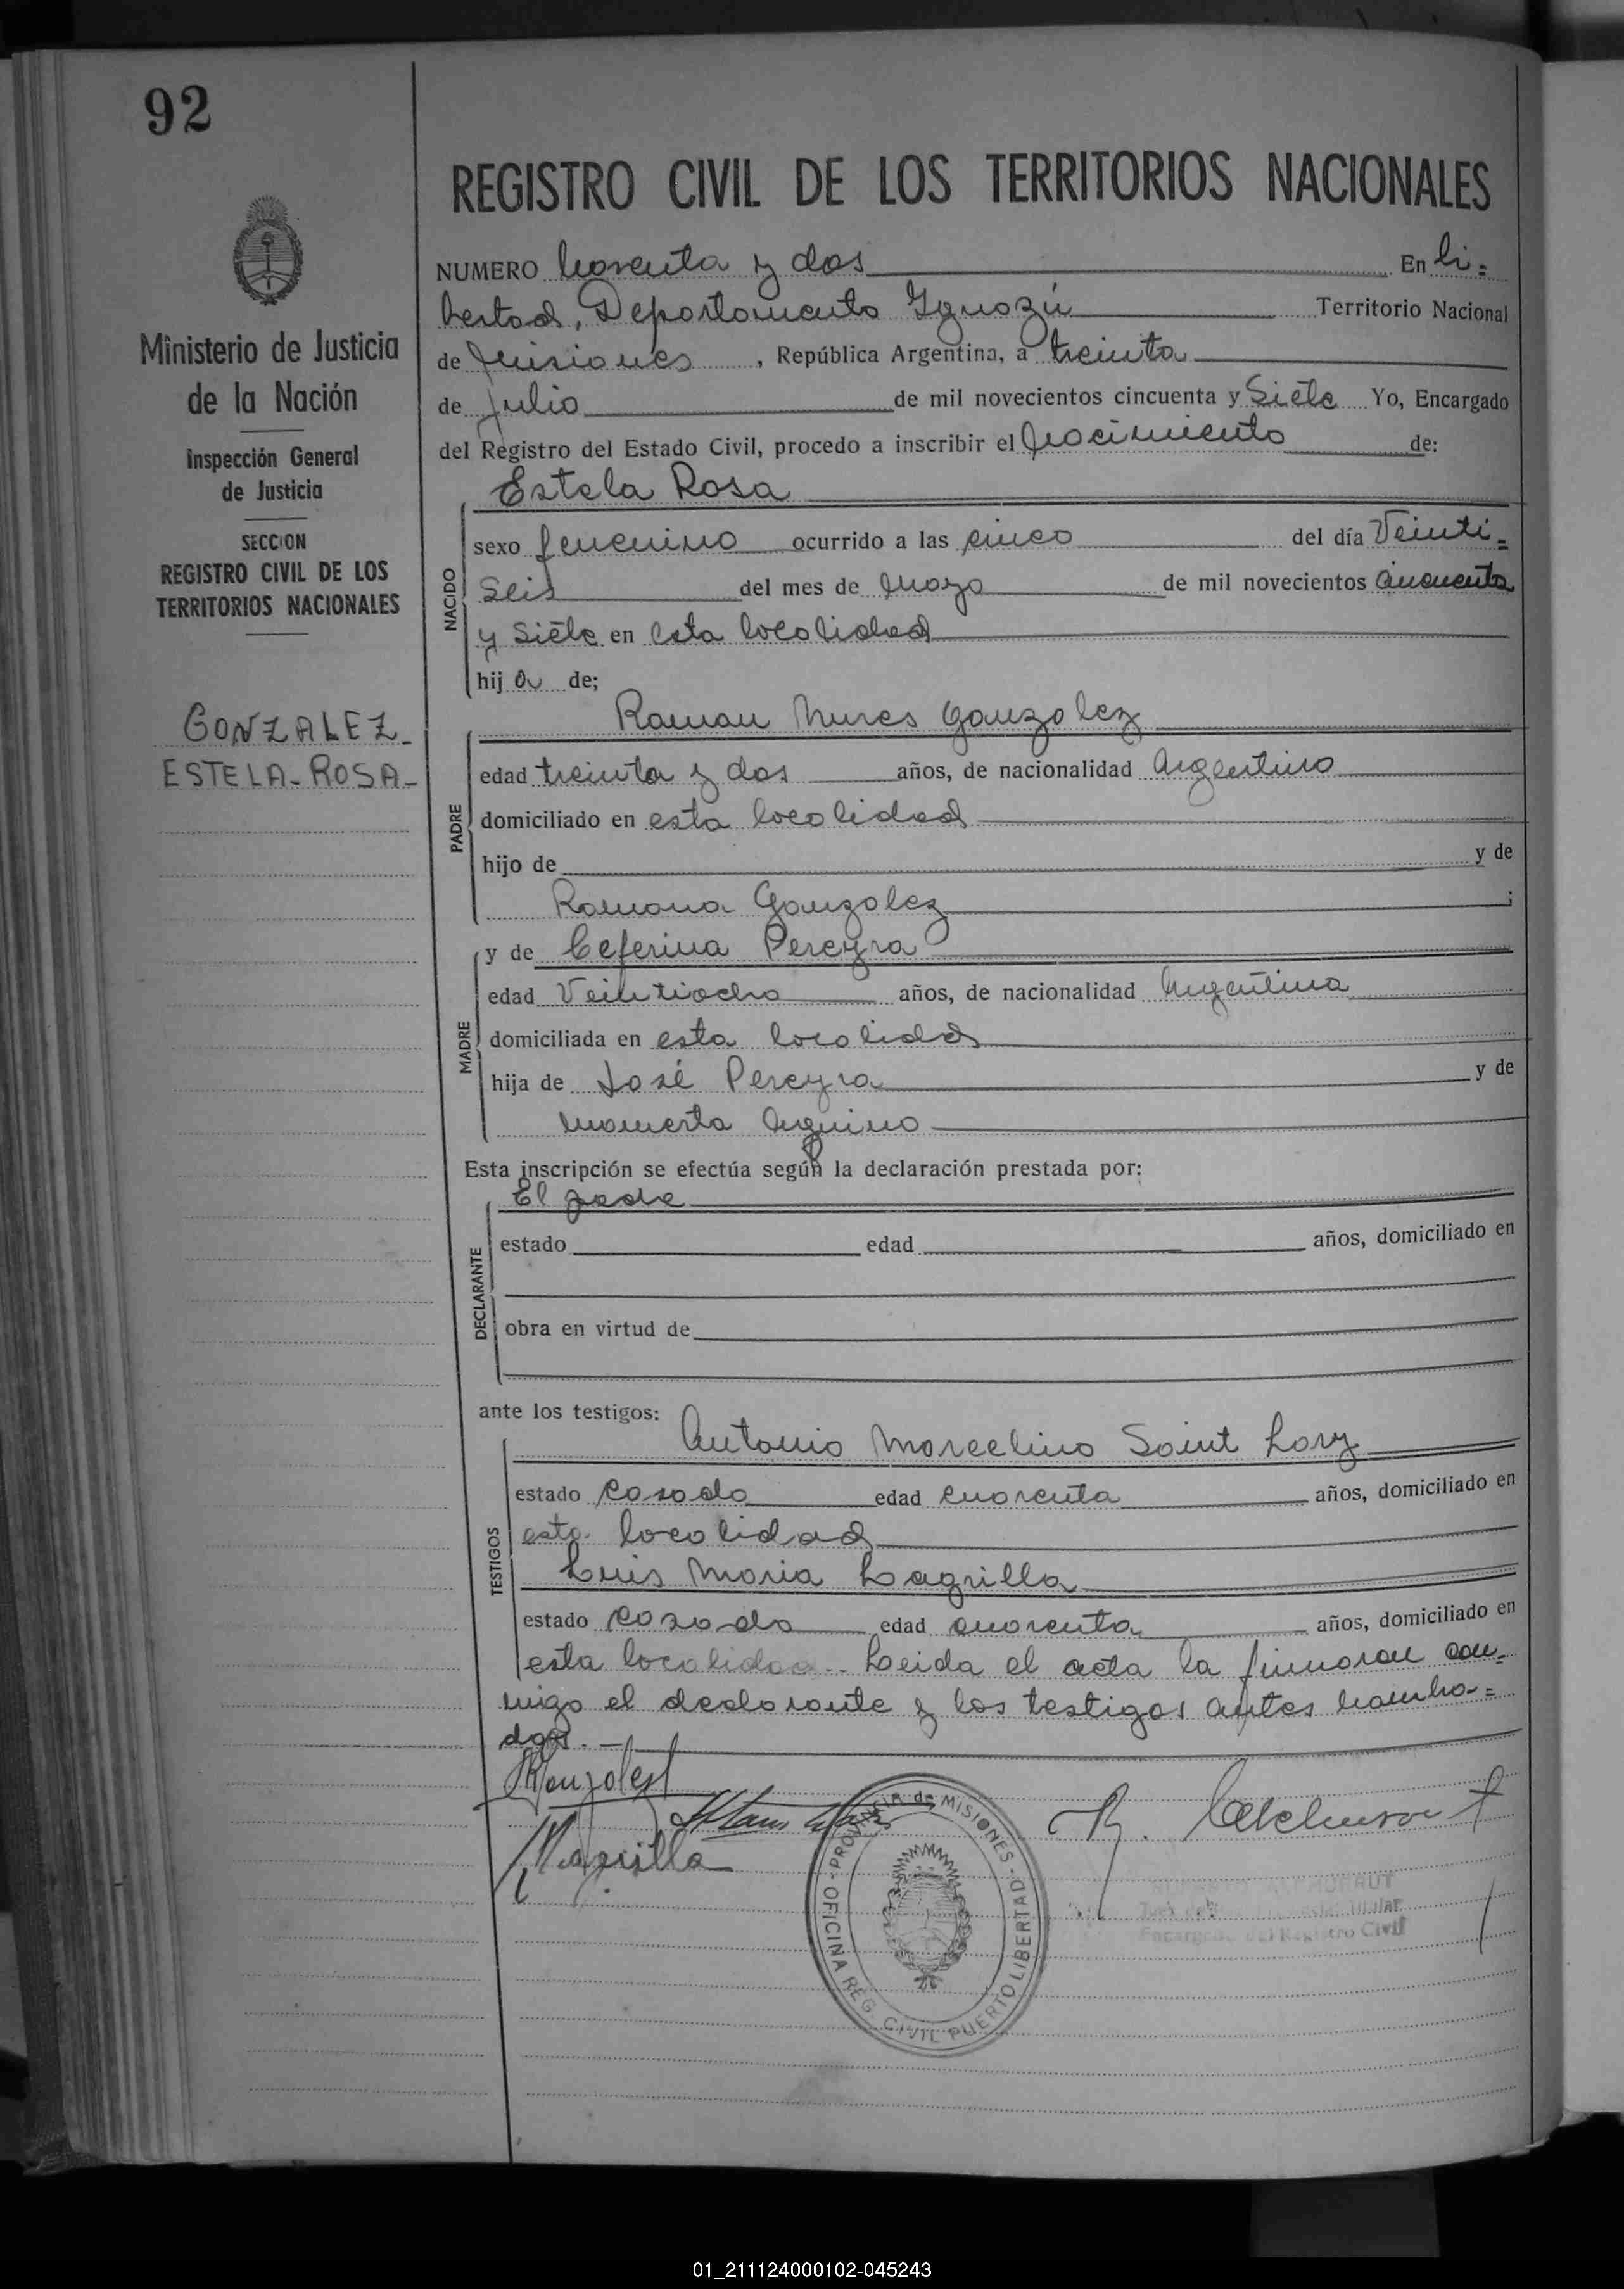 92
Ministerio de Justicia
de la Nación
Inspección General
de Justicia
SECCION
REGISTRO CIVIL DE LOS
TERRITORIOS NACIONALES
GONZALEZ
ESTELA-ROSA-
REGISTRO CIVIL DE LOS TERRITORIOS NACIONALES
NUMERO Noventa y dos En Li=
bertad, Departamento Iguazú Territorio Nacional
de Misiones, República Argentina, a treinta
de Julio de mil novecientos cincuenta y Siete Yo, Encargado
del Registro del Estado Civil, procedo a inscribir el Nacimiento de:
Estela Rosa
NACIDO
sexo femenino ocurrido a las cinco del día Veinti=
Seis del mes de Mayo de mil novecientos cincuenta
y Siete en esta localidad
hij a de;
Ramon Nunes Gonzalez
PADRE
edad treinta y dos años, de nacionalidad Argentino
domiciliado en esta localidad
hijo de y de
Ramona Gonzalez;
MADRE
y de Ceferina Pereyra
edad Veintiocho años, de nacionalidad Argentina
domiciliada en esta localidad
hija de José Pereyra y de
Aquino
Esta inscripción se efectúa según la declaración prestada por:
El padre
DECLARANTE
estado edad años, domiciliado en
obra en virtud de
ante los testigos:
TESTIGOS
Antonio Marcelino Saint
estado Casado edad cuarenta años, domiciliado en
esta localidad
Luis Maria Lagrilla
estado casado edad cuarenta años, domiciliado en
esta localidad.- Leida el acta la firmaron con=
migo el declarante y los testigos antes nombra=
dos.-
RGonzalez
Lagrilla
PROVINCIA de MISIONES
OFICINA REG. CIVIL PUERTO LIBERTAD
Titular
Encargado del Registro Civil
01_211124000102-045243